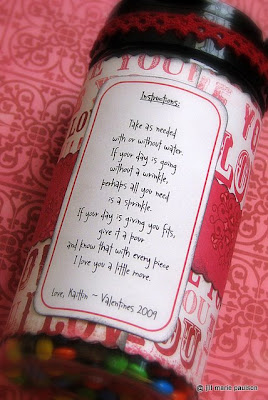 Instructions:
Take as needed
with or without water.
If your day is going
without a wrinkle,
perhaps all you need
is a sprinkle.
If your day is giving you fits,
give it a pour
and know that with every piece
I love you a little more.
Love, Kaitlin ~ Valentines 2009
@ jill marie paulson